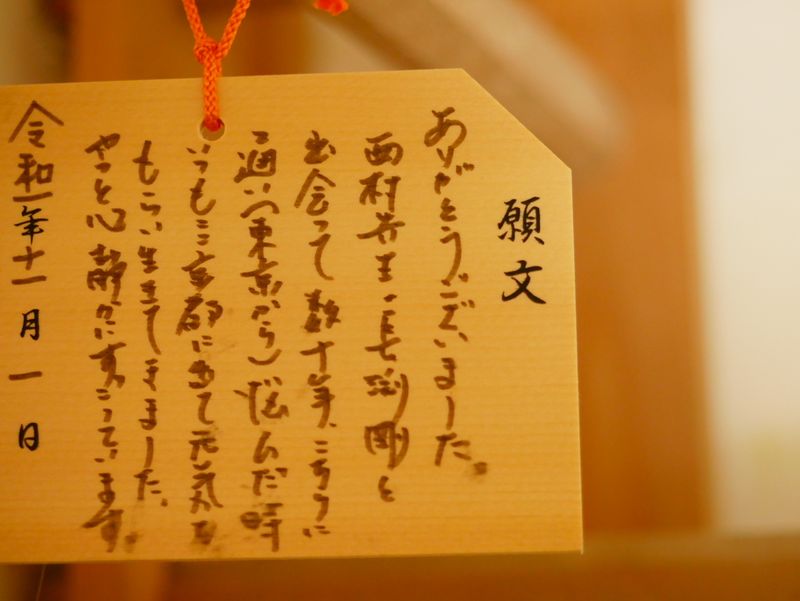 願文
ありがとうございました。
西村 ・長渕剛と
出会って数十年、こちらに
通い(東京から)悩んだ時
いつもここ京都に来て元気を
もらい生きてきました。
やっと心静かにすごしています。
令和一年十一月一日